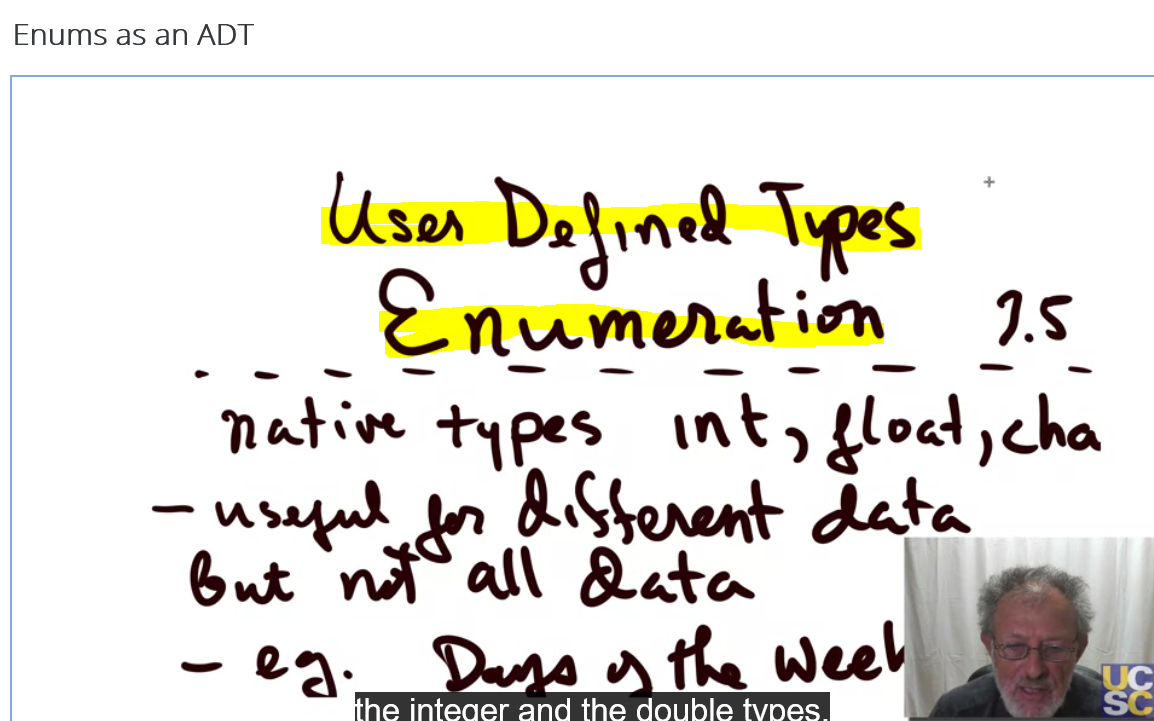 Enums as an ADT
User Defined Types
Enumeration 7.5
native types int, float, cha
- useful for different data
But not all data
- eg. Days of the Week
the integer and the double types.
UC
SC